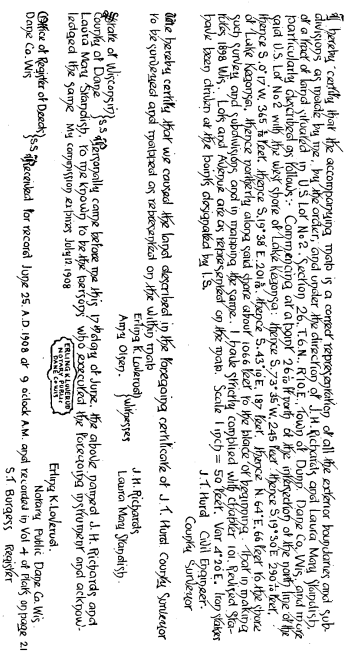 I hereby certify that the accompanying map is a correct representation of all the exterior boundaries and sub-
divisions as made by me, by the order, and under the direction of J. H. Richards and Laura May Standish,
of a tract of land situated in U.S. Lot No 2, Section 26, T.6 N., R.10 E., Town of Dunn, Dane Co. Wis, and more
particularly described as follows:- Commencing at a point 26½ ft north of the intersection of the north line of the
said U.S. Lot No 2 with the west shore of Lake Kegonsa: thence S. 73°35' W. 245 feet thence S 19°30' E 290½ feet,
thence S. 0°17' W. 365 feet, thence S. 19°38' E. 201½ thence S. 43°10' E. 187 feet. thence N 64° E. 66 feet to the shore
of Lake Kegonsa, thence northerly along said shore about 1066 feet to the place of beginning. That in making
such survey and subdivisions and in mapping the same, I have strictly complied with chapter 101, Revised Sta-
tutes 1898 Wis. Lots and Avenue are as represented on the map. Scale 1 inch = 50 feet. Var 4°20' E. Iron stakes
have been driven at the points designated by I.S.
J. T. Hurd Civil Engineer.
County Surveyor
We hereby certify that we caused the land described in the foregoing certificate of J. T. Hurd County Surveyor
to be surveyed and mapped as represented on the within map
Erling K. Loverud
Amy Olsen. } Witnesses
J. H. Richards
Laura May Standish.
State of Wisconsin }
County of Dane } S.S. Personally came before me this 17th day of June, the above named J. H. Richards and
Laura May Standish, to me known to be the persons who executed the foregoing instrument and acknow-
ledged the same My commission expires July 11 1908
ERLING K. LOVERUD
NOTARY PUBLIC
DANE CO. WIS.
Erling K. Loverud.
Notary Public Dane Co. Wis.
Office of Register of Deeds }
Dane Co. Wis } S.S. Received for record June 25, A.D. 1908 at 9 oclock A.M. and recorded in Vol 4 of Plats on page 21
S. T. Burgess
Register